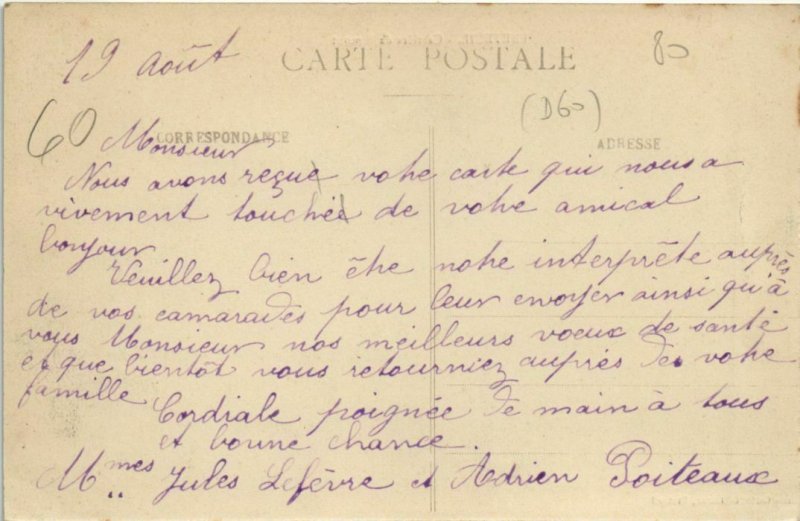 19 Août
CARTE POSTALE
80
60
(D60)
CORRESPONDANCE
ADRESSE
Monsieur
Nous avons reçue votre carte qui nous a
vivement touchée de votre amical
bonjour
Veuillez bien être notre interprète auprès
de vos camarades pour leur envoyer ainsi qu'à
vous Monsieur nos meilleurs voeux de santé
et que bientôt vous retourniez auprès de votre
famille
Cordiale poignée de main à tous
et bonne chance.
Mmes Jules Lefèvre et Adrien Poiteaux